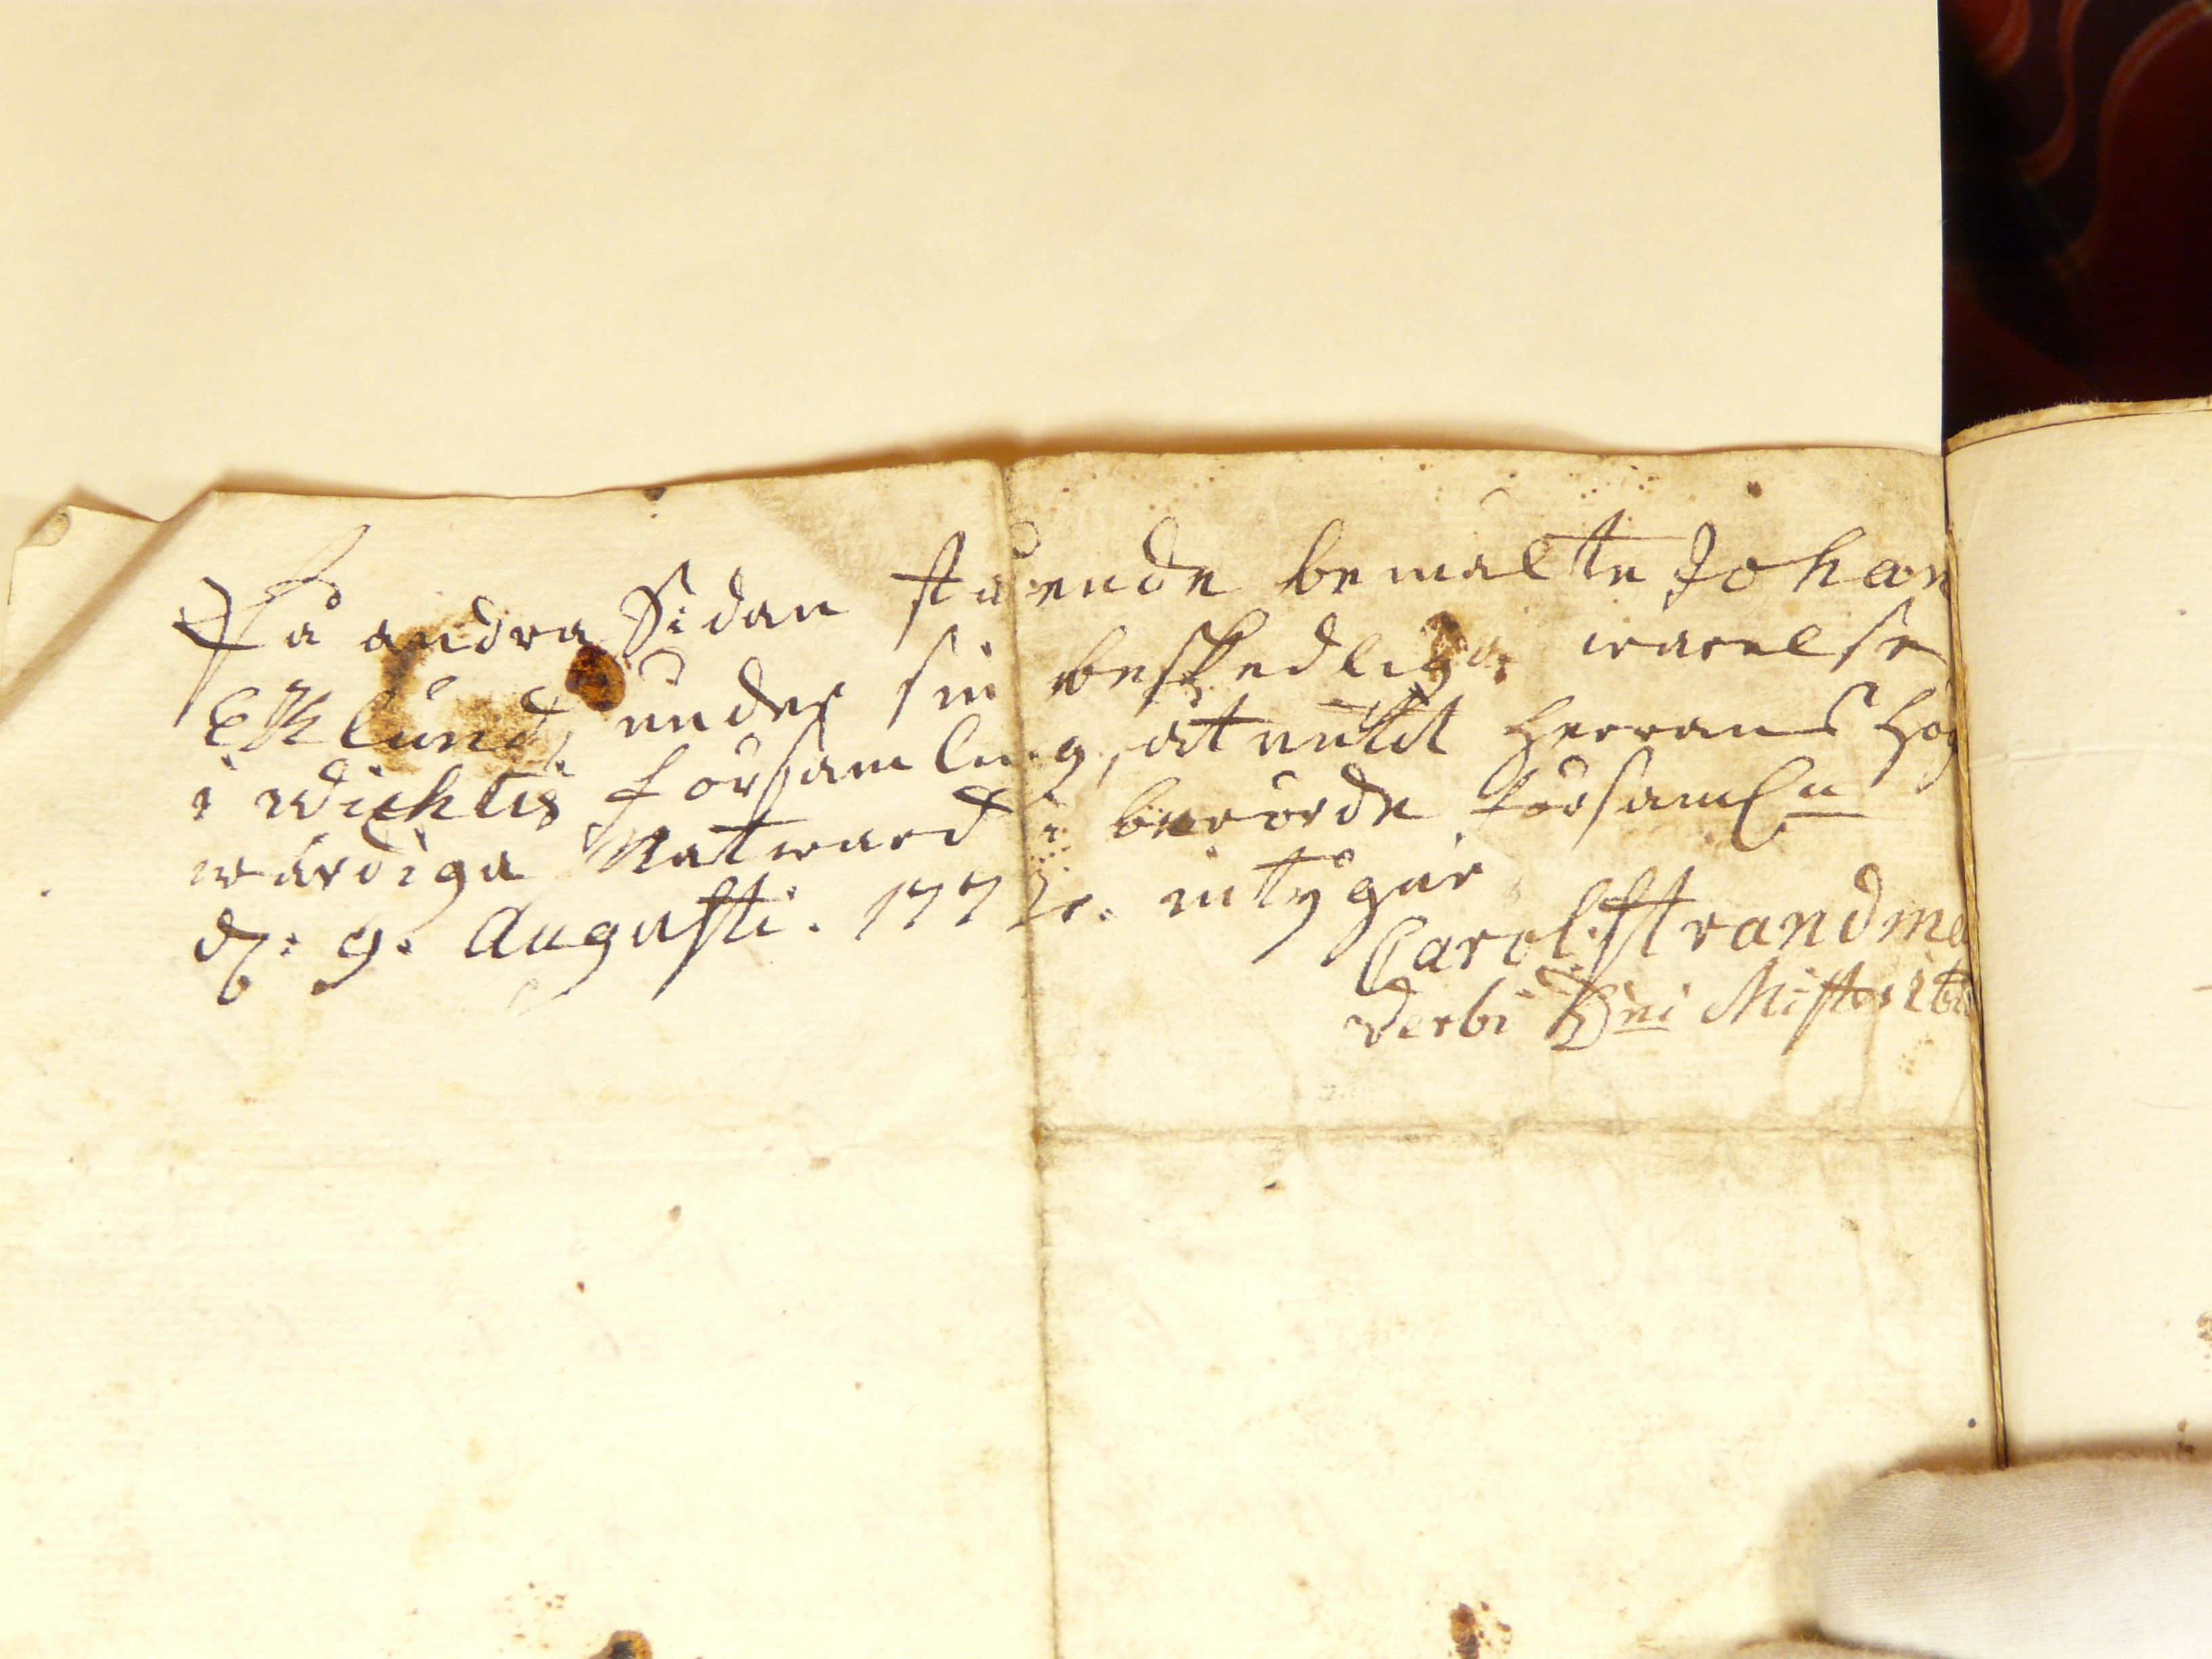 På andra Sidan stående bemälte Johan
Eklund, under sin beskedliga warelse
i Wichtis församling, åtnutit Herrans Hög
wärdiga Natward i berörde församl:n
d: 9. Augusti. 177 intygar
Carol. Strandma
Verbi Dei Minist